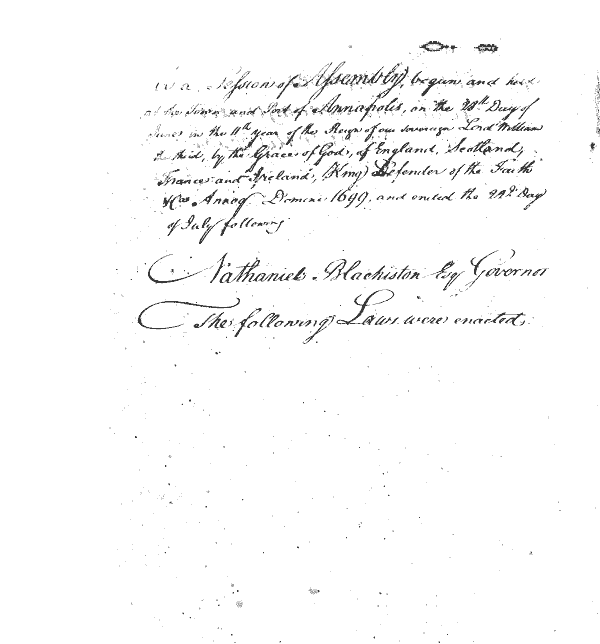 at a Session of Assembly, begun and held
at the Town and Port of Annapolis, on the 28th Day of
June in the 11th Year of the Reign of our Sovereign Lord William
the third, by the Grace of God, of England, Scotland,
France and Ireland, King Defender of the Faith
&ca Annoq Domini 1699, and ended the 22d Day
of July following
Nathaniel Blackiston Esq Governor
The following Laws were enacted,